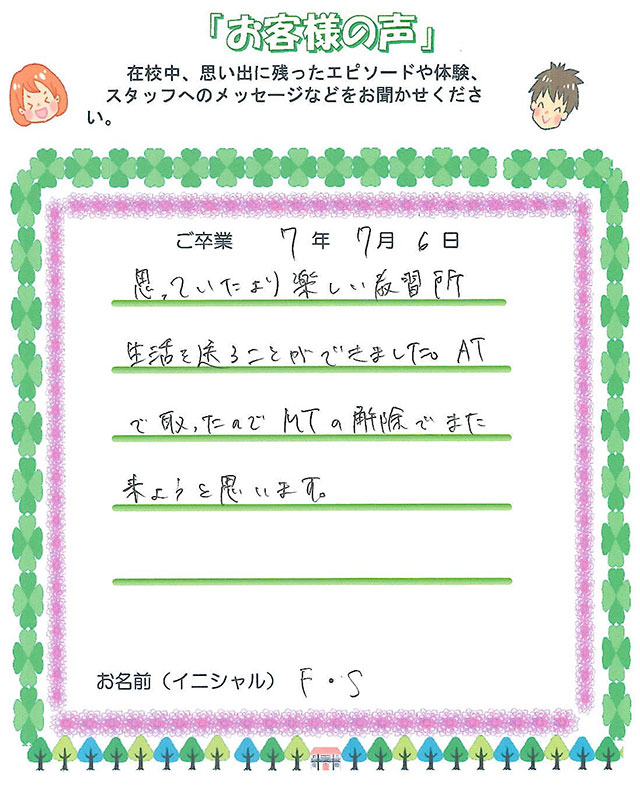 「お客様の声」
在校中、思い出に残ったエピソードや体験、
スタッフへのメッセージなどをお聞かせくださ
い。
ご卒業 7年 7月 6日
思っていたより楽しい教習所
生活を送ることができました。AT
で取ったので MTの解除でまた
来ようと思います。
お名前（イニシャル） F・S